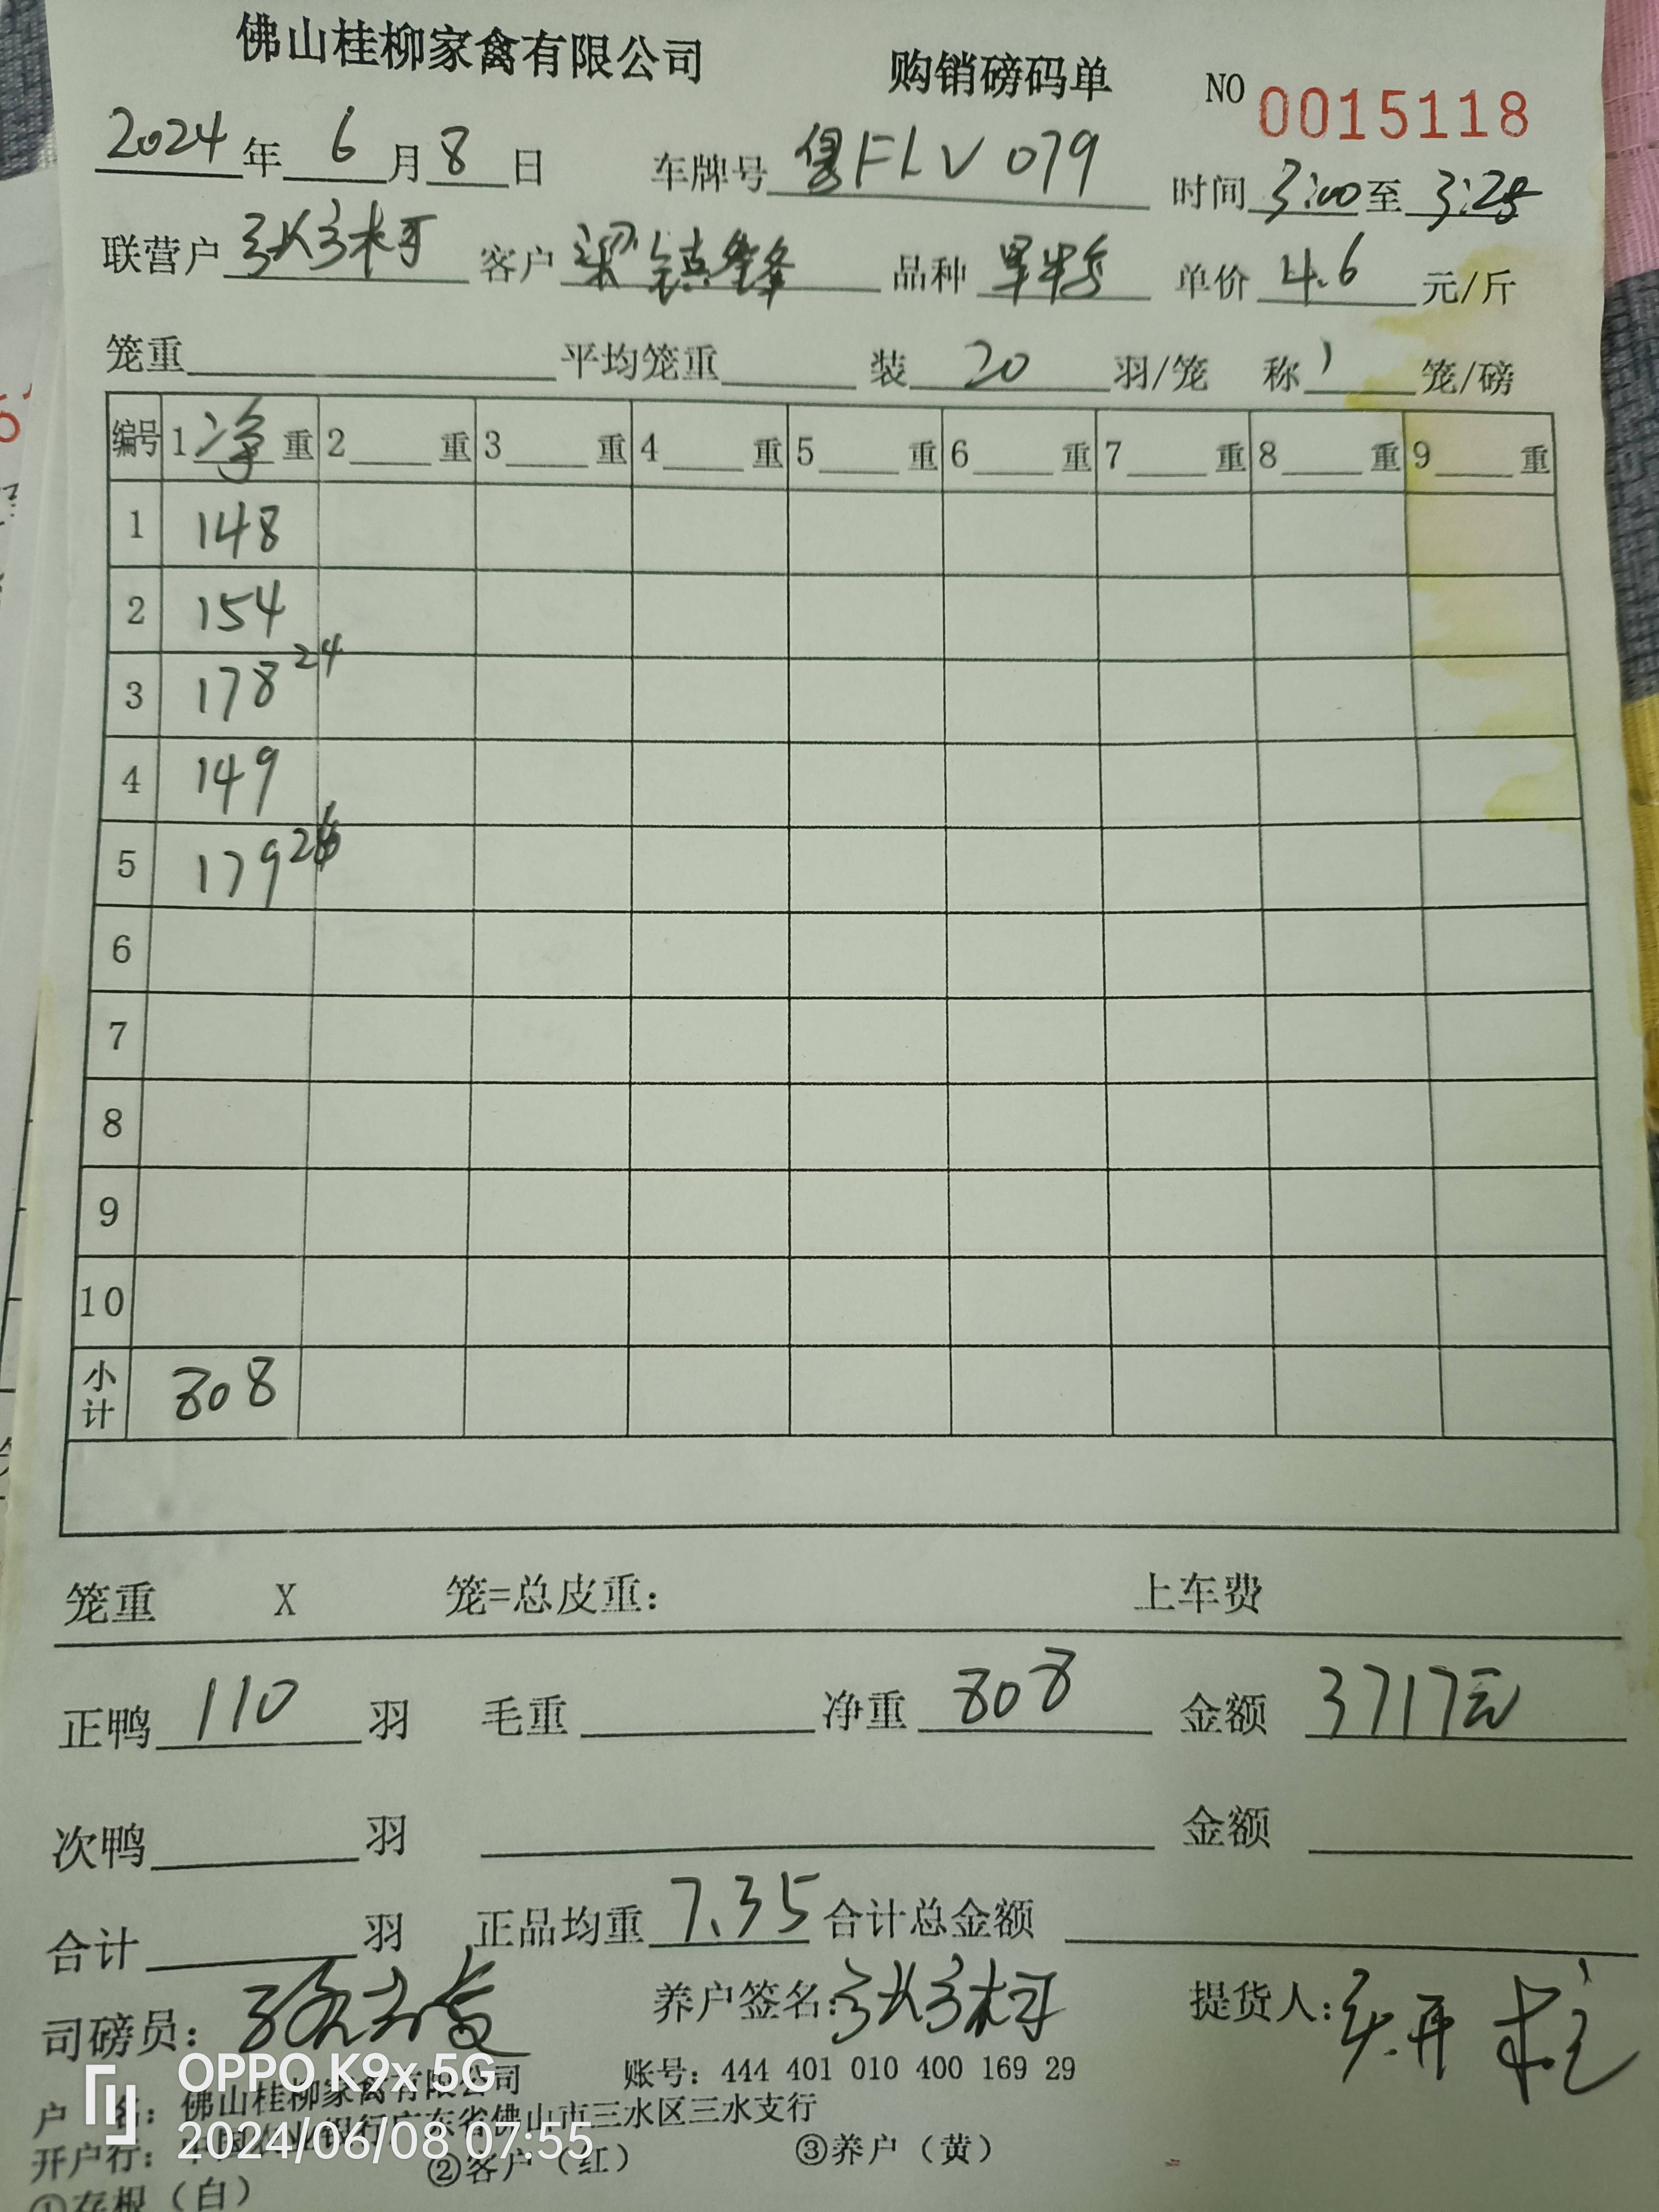 佛山桂柳家禽有限公司 购销磅码单 NO 0015118
2024年6月8日 车牌号 粤FLV079 时间 3:00至3:25
联营户 客户 梁镇锋 品种 单价 4.6 元/斤
笼重 平均笼重 装 20 羽/笼 称 1 笼/磅
编号 1净重 2重 3重 4重 5重 6重 7重 8重 9重
1 148
2 154
3 178 24
4 149
5 179
6
7
8
9
10
小计 808
笼重 X 笼=总皮重: 上车费
正鸭 110 羽 毛重 净重 808 金额 3717元
次鸭 羽 金额
合计 羽 正品均重 7.35 合计总金额
司磅员: 养户签名: 提货人:
户 名: 佛山桂柳家禽有限公司 账号: 444 401 010 400 169 29
开户行: 银行广东省佛山市三水区三水支行
①存根（白） ②客户（红） ③养户（黄）
OPPO K9x 5G
2024/06/08 07:55